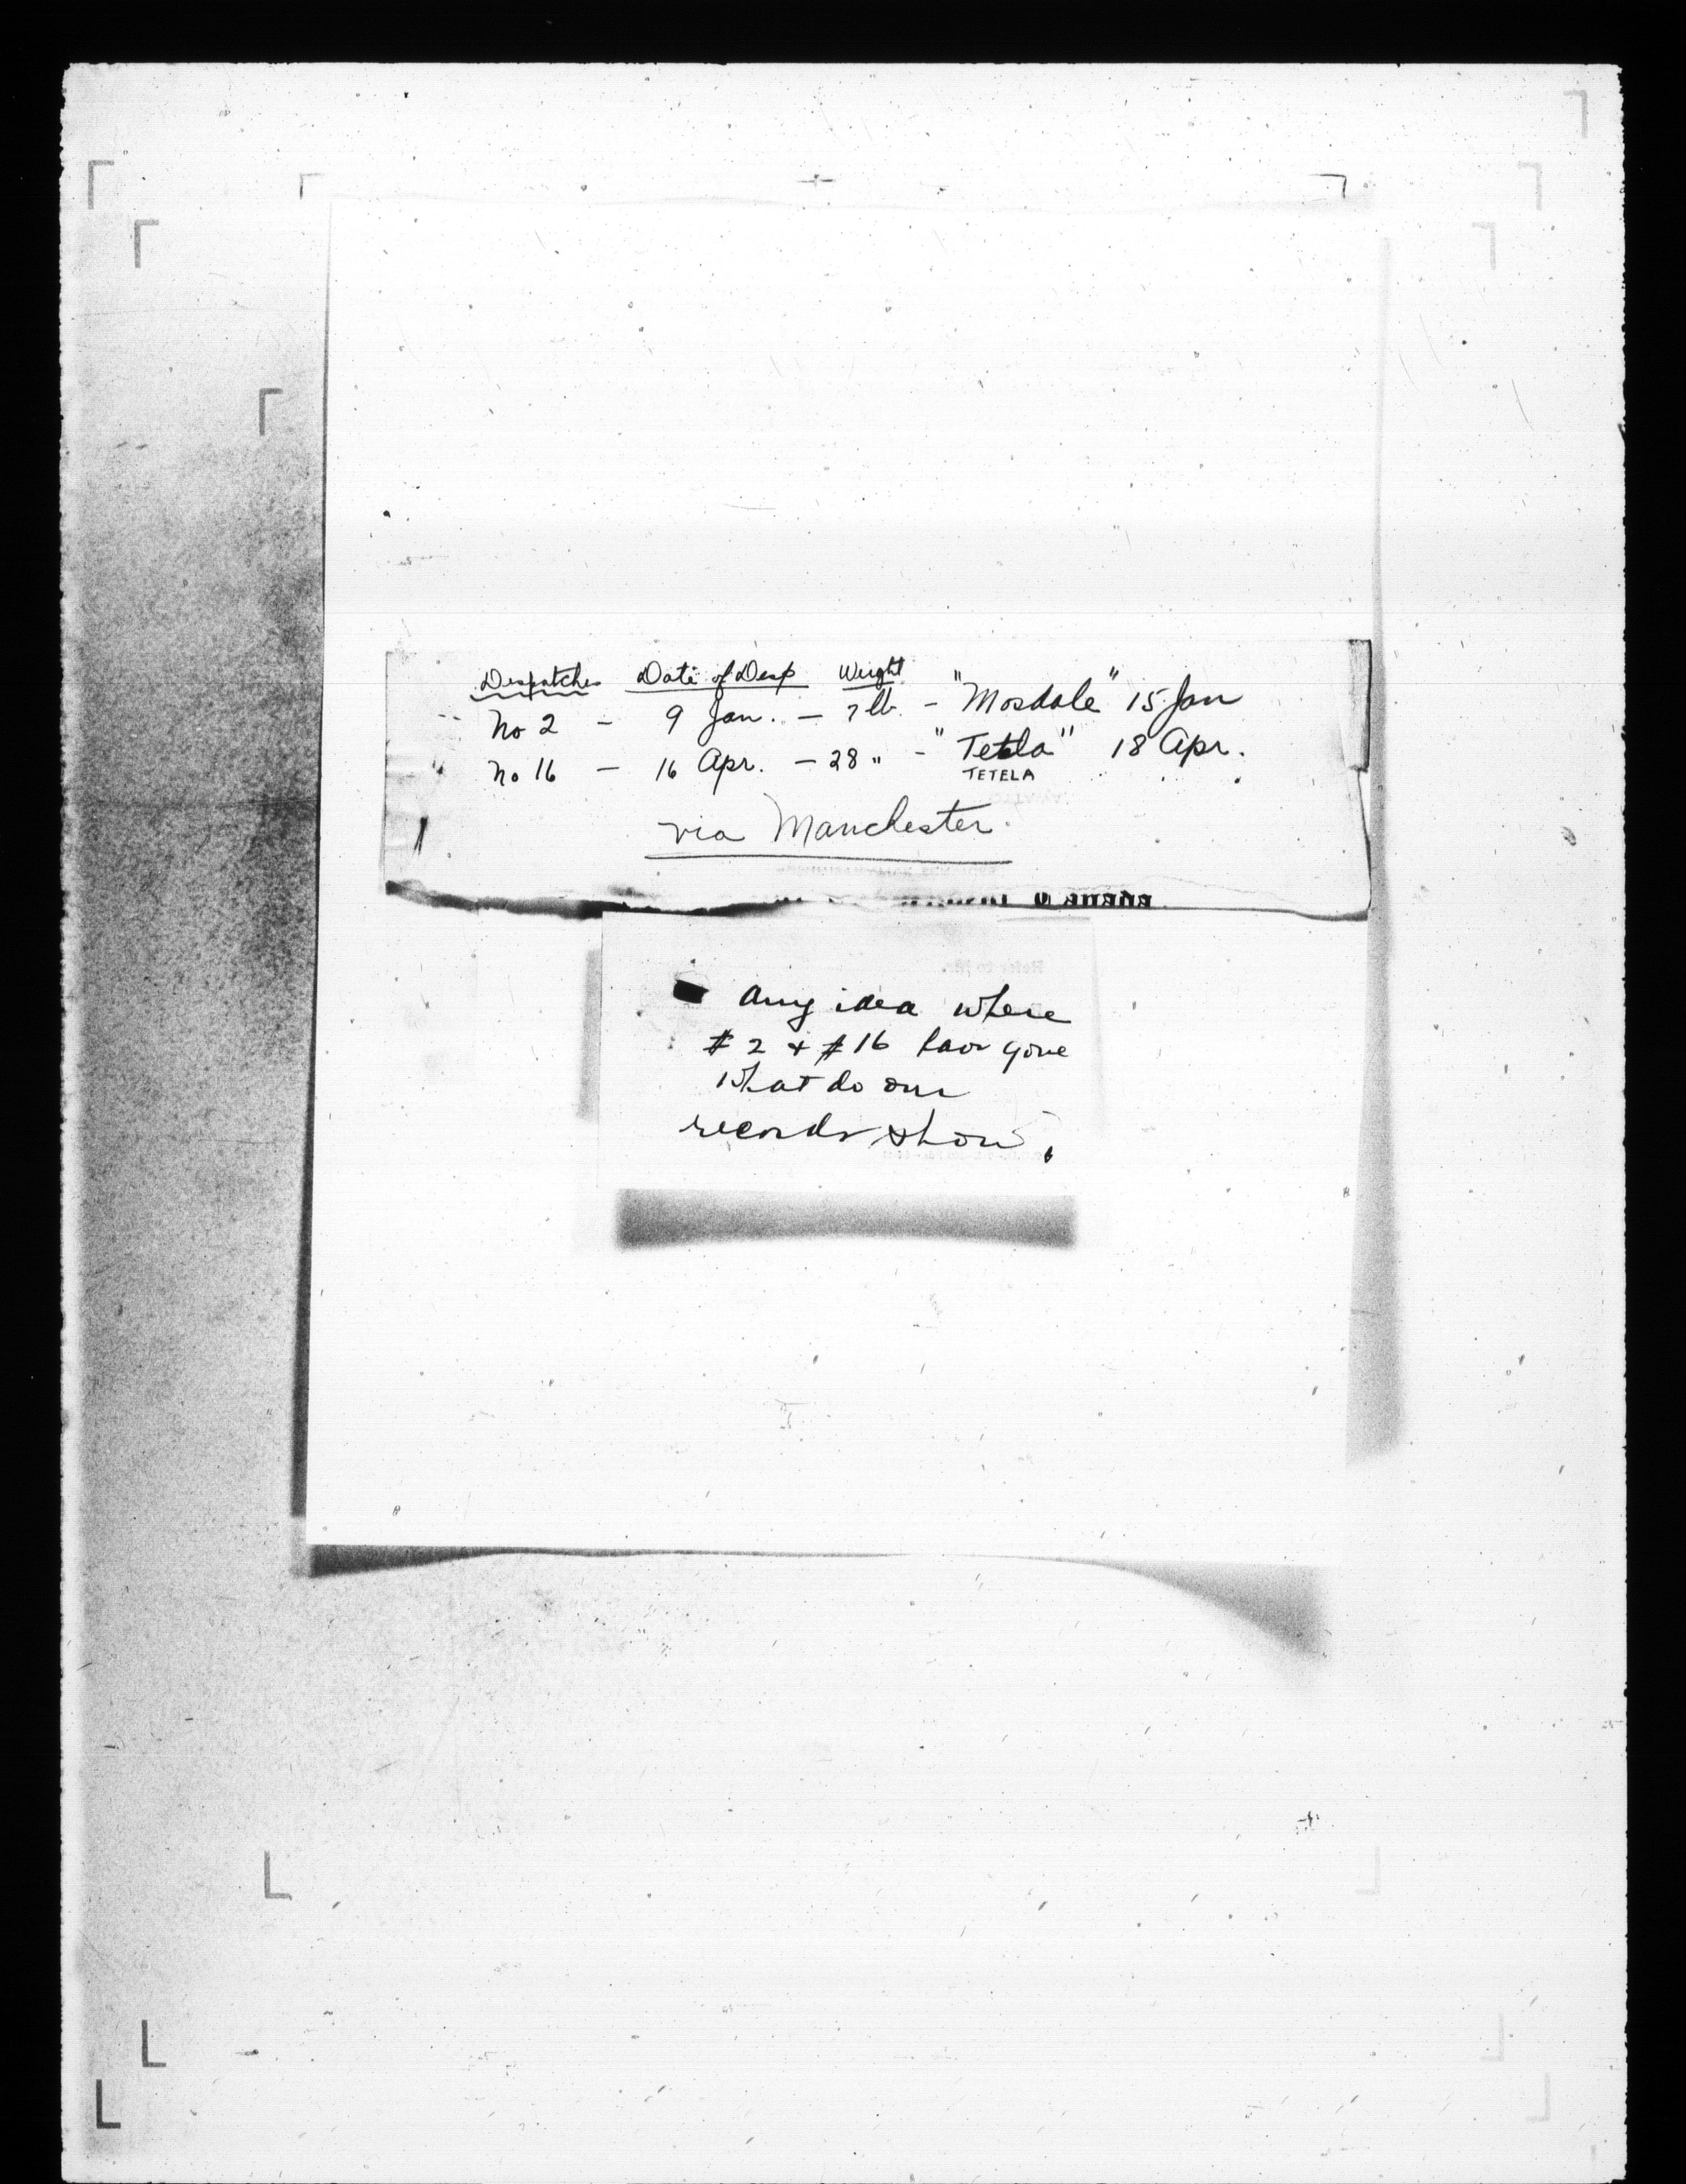 Despatches Date of Desp Weight
No 2 - 9 Jan. - 7 lb. - "Mosdale" 15 Jan
No 16 - 16 Apr. - 28 " - "Tetela" 18 Apr.
TETELA
via Manchester.
Canada
Any idea where
# 2 + # 16 have gone
What do our
records show,